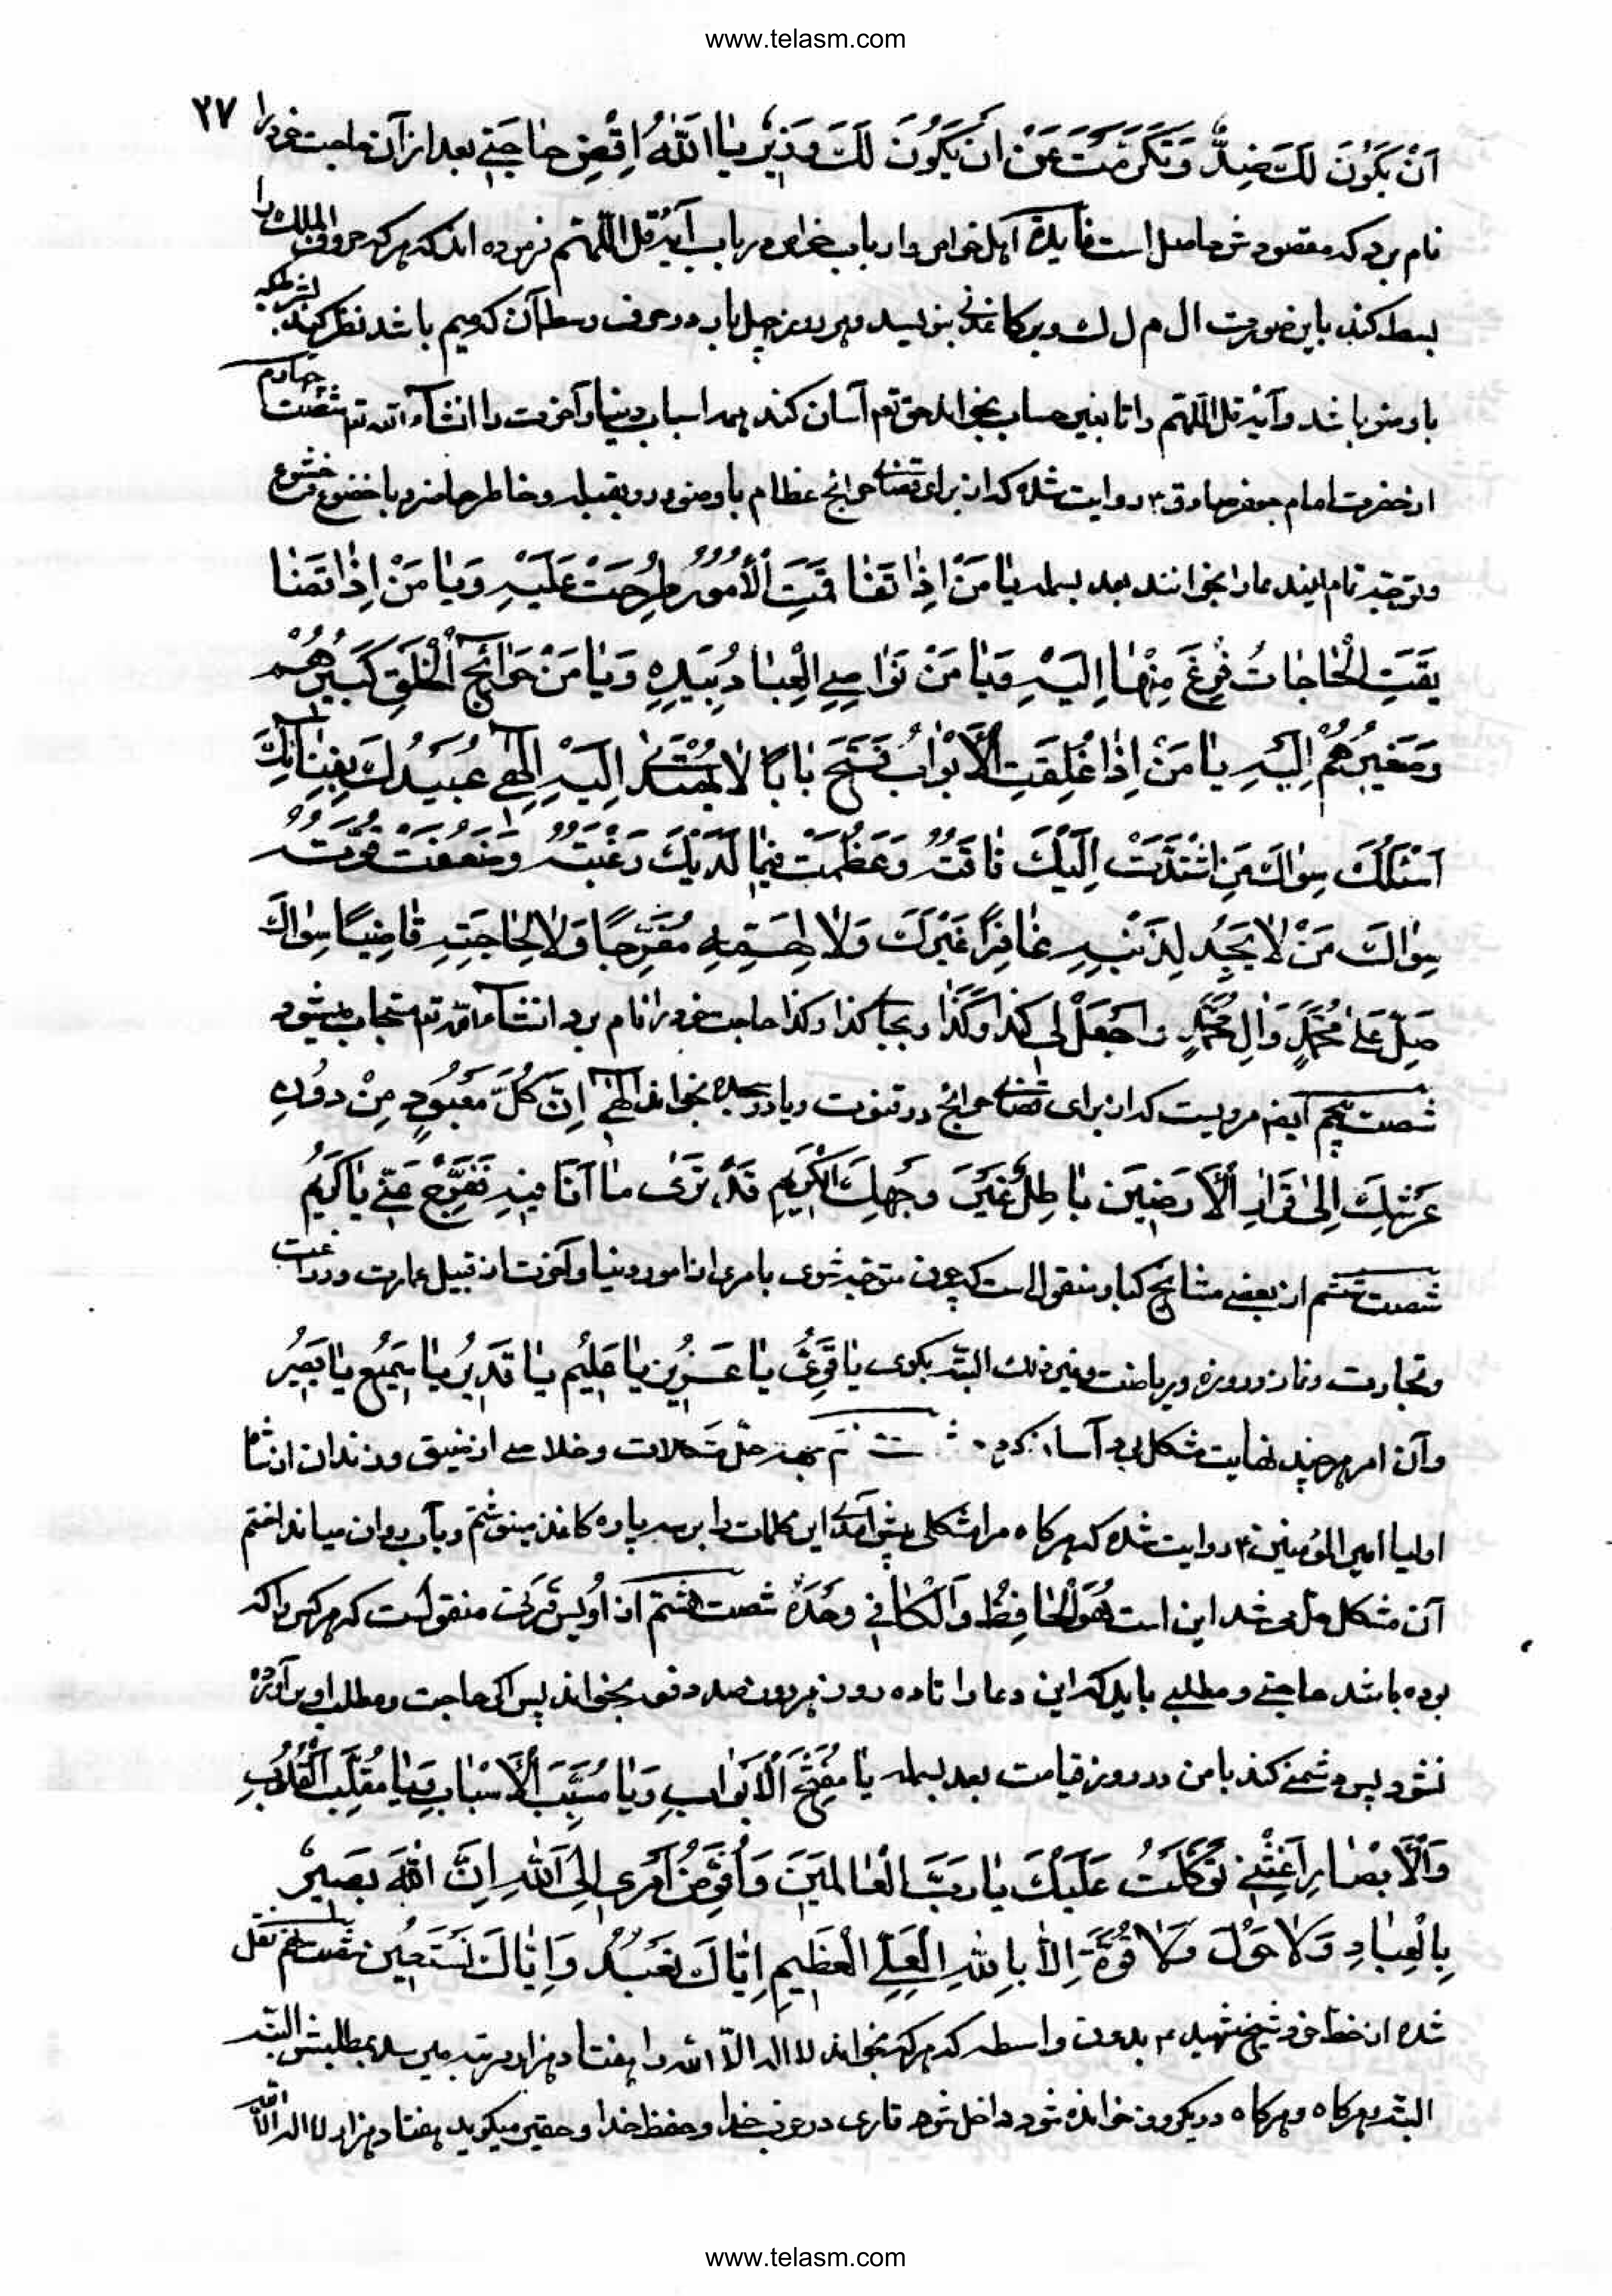 www.telasm.com
٢٧
اَنْ يَكُونَ لَكَ ضِدٌّ وَتَكَرَّمْتَ عَنْ اَنْ يَكُونَ لَكَ وَزِيرٌ يَا اَللّٰهُ اِقْضِ حَاجَتِي بعد از آن حاجت خود را
نام برد که مقصودش حاصل است فایده اهل خواص و ارباب خواص در باب آیه قل اللّهمّ فرموده اند که هر که حروف الملك را
بسط کند باین صورت ا ل م ل ك و بر کاغذی بنویسد و هر روز چهل بار در حرف وسط آن که میم باشد نظر کند بشرطیکه
باوضو باشد و آیه قل اللّهمّ را تا بغیر حساب بخواند حق تعم آسان کند همه اسباب دنیا و آخرت را انشاء الله تم شصت چهارم
از حضرت امام جعفر صادق ع روایت شده که از برای قضای حوائج عظام باوضو رو بقبله و خاطر حاضر و با خضوع و خشوع
و توجه تام ایند عا را بخوانند بعد بسمله يَا مَنْ اِذَا تَضَايَقَتِ الْاُمُورُ طُرِحَتْ عَلَيْهِ وَيَا مَنْ اِذَا تَضَا
يَقَتِ الْحَاجَاتُ فُرِغَ مِنْهَا اِلَيْهِ وَيَا مَنْ نَوَاصِي الْعِبَادِ بِيَدِهِ وَيَا مَنْ حَوَائِجُ الْخَلْقِ كَبِيرُهُمْ
وَصَغِيرُهُمْ اِلَيْهِ يَا مَنْ اِذَا غُلِقَتِ الْاَبْوَابُ فَتَحَ بَابًا لَا يُهْتَدٰى اِلَيْهِ اِلٰهِي عُبَيْدُكَ بِفِنَائِكَ
اَسْئَلُكَ سِوَاكَ مَنِ اشْتَدَّتْ اِلَيْكَ فَاقَتُهُ وَعَظُمَتْ فِيمَا لَدَيْكَ رَغْبَتُهُ وَضَعُفَتْ قُوَّتُهُ
سِوَاكَ مَنْ لَا يَجِدُ لِذَنْبِهِ غَافِرًا غَيْرَكَ وَلَا لِهَمِّهِ مُفَرِّجًا وَلَا لِحَاجَتِهِ قَاضِيًا سِوَاكَ
صَلِّ عَلٰى مُحَمَّدٍ وَاٰلِ مُحَمَّدٍ وَاجْعَلْ لِي كَذَا وَكَذَا و بجای کذا و کذا حاجت خود را نام برد انشاء الله تم مستجاب میشود
شصت پنجم ایضم مرویست که از برای قضای حوائج در قنوت و یا در سجده بخواند اِلٰهِي اِنَّ كُلَّ مَعْبُودٍ مِنْ دُونِ
عَرْشِكَ اِلٰى قَرَارِ الْاَرَضِينَ بَاطِلٌ غَيْرَ وَجْهِكَ الْكَرِيمِ قَدْ تَرٰى مَا اَنَا فِيهِ فَفَرِّجْ عَنِّي يَا كَرِيمُ
شصت ششم از بعضی مشایخ کبار منقول است که چون متوجه شوی بامری از امور دنیا و آخرت از قبیل عمارت و زراعت
و تجارت و نماز و روزه و ریاضت و غیر ذلك البتّه بگوی يَا قَوِيُّ يَا عَزِيزُ يَا عَلِيمُ يَا قَدِيرُ يَا سَمِيعُ يَا بَصِيرُ
و آن امر هر چند نهایت مشکل بود آسان کردد بجهة حل مشکلات و خلاصی از ضیق و زندان از شاه
اولیا امیر المؤمنین ع روایت شده که هر کاه مرا مشکلی پیش آمدی این کلمات را بر سه پاره کاغذ مینوشتم و بآب روان میانداختم
آن مشکل حل می شد این است هُوَ الْحَافِظُ وَالْكَافِي وَحْدَهُ شصت هشتم از اویس قرنی منقول است که هر کس را که
بوده باشد حاجتی و مطلبی باید که این دعا را تا ده روز هر روز صد دفعه بخواند پس اکر حاجت و مطلب او برآورده
نشود پس دشمنی کند با من در روز قیامت بعد بسمله يَا مُفَتِّحَ الْاَبْوَابِ وَيَا مُسَبِّبَ الْاَسْبَابِ وَيَا مُقَلِّبَ الْقُلُوبِ
وَالْاَبْصَارِ اَغِثْنِي تَوَكَّلْتُ عَلَيْكَ يَا رَبَّ الْعَالَمِينَ وَاُفَوِّضُ اَمْرِي اِلَى اللّٰهِ اِنَّ اللّٰهَ بَصِيرٌ
بِالْعِبَادِ وَلَا حَوْلَ وَلَا قُوَّةَ اِلَّا بِاللّٰهِ الْعَلِيِّ الْعَظِيمِ اِيَّاكَ نَعْبُدُ وَاِيَّاكَ نَسْتَعِينُ شصت نهم نقل
شده از خط خود شیخ شهید ره بدون واسطه که هر که بخواند لا اله الّا الله را هفتاد هزار مرتبه میرسد بمطلبش البتّه
البتّه هر کاه و هر کاه در یکروز خوانده شود داخل شود قاری در عون خدا و حفظ خدا و حقیر میکوید هفتاد هزار لا اله الّا الله
www.telasm.com